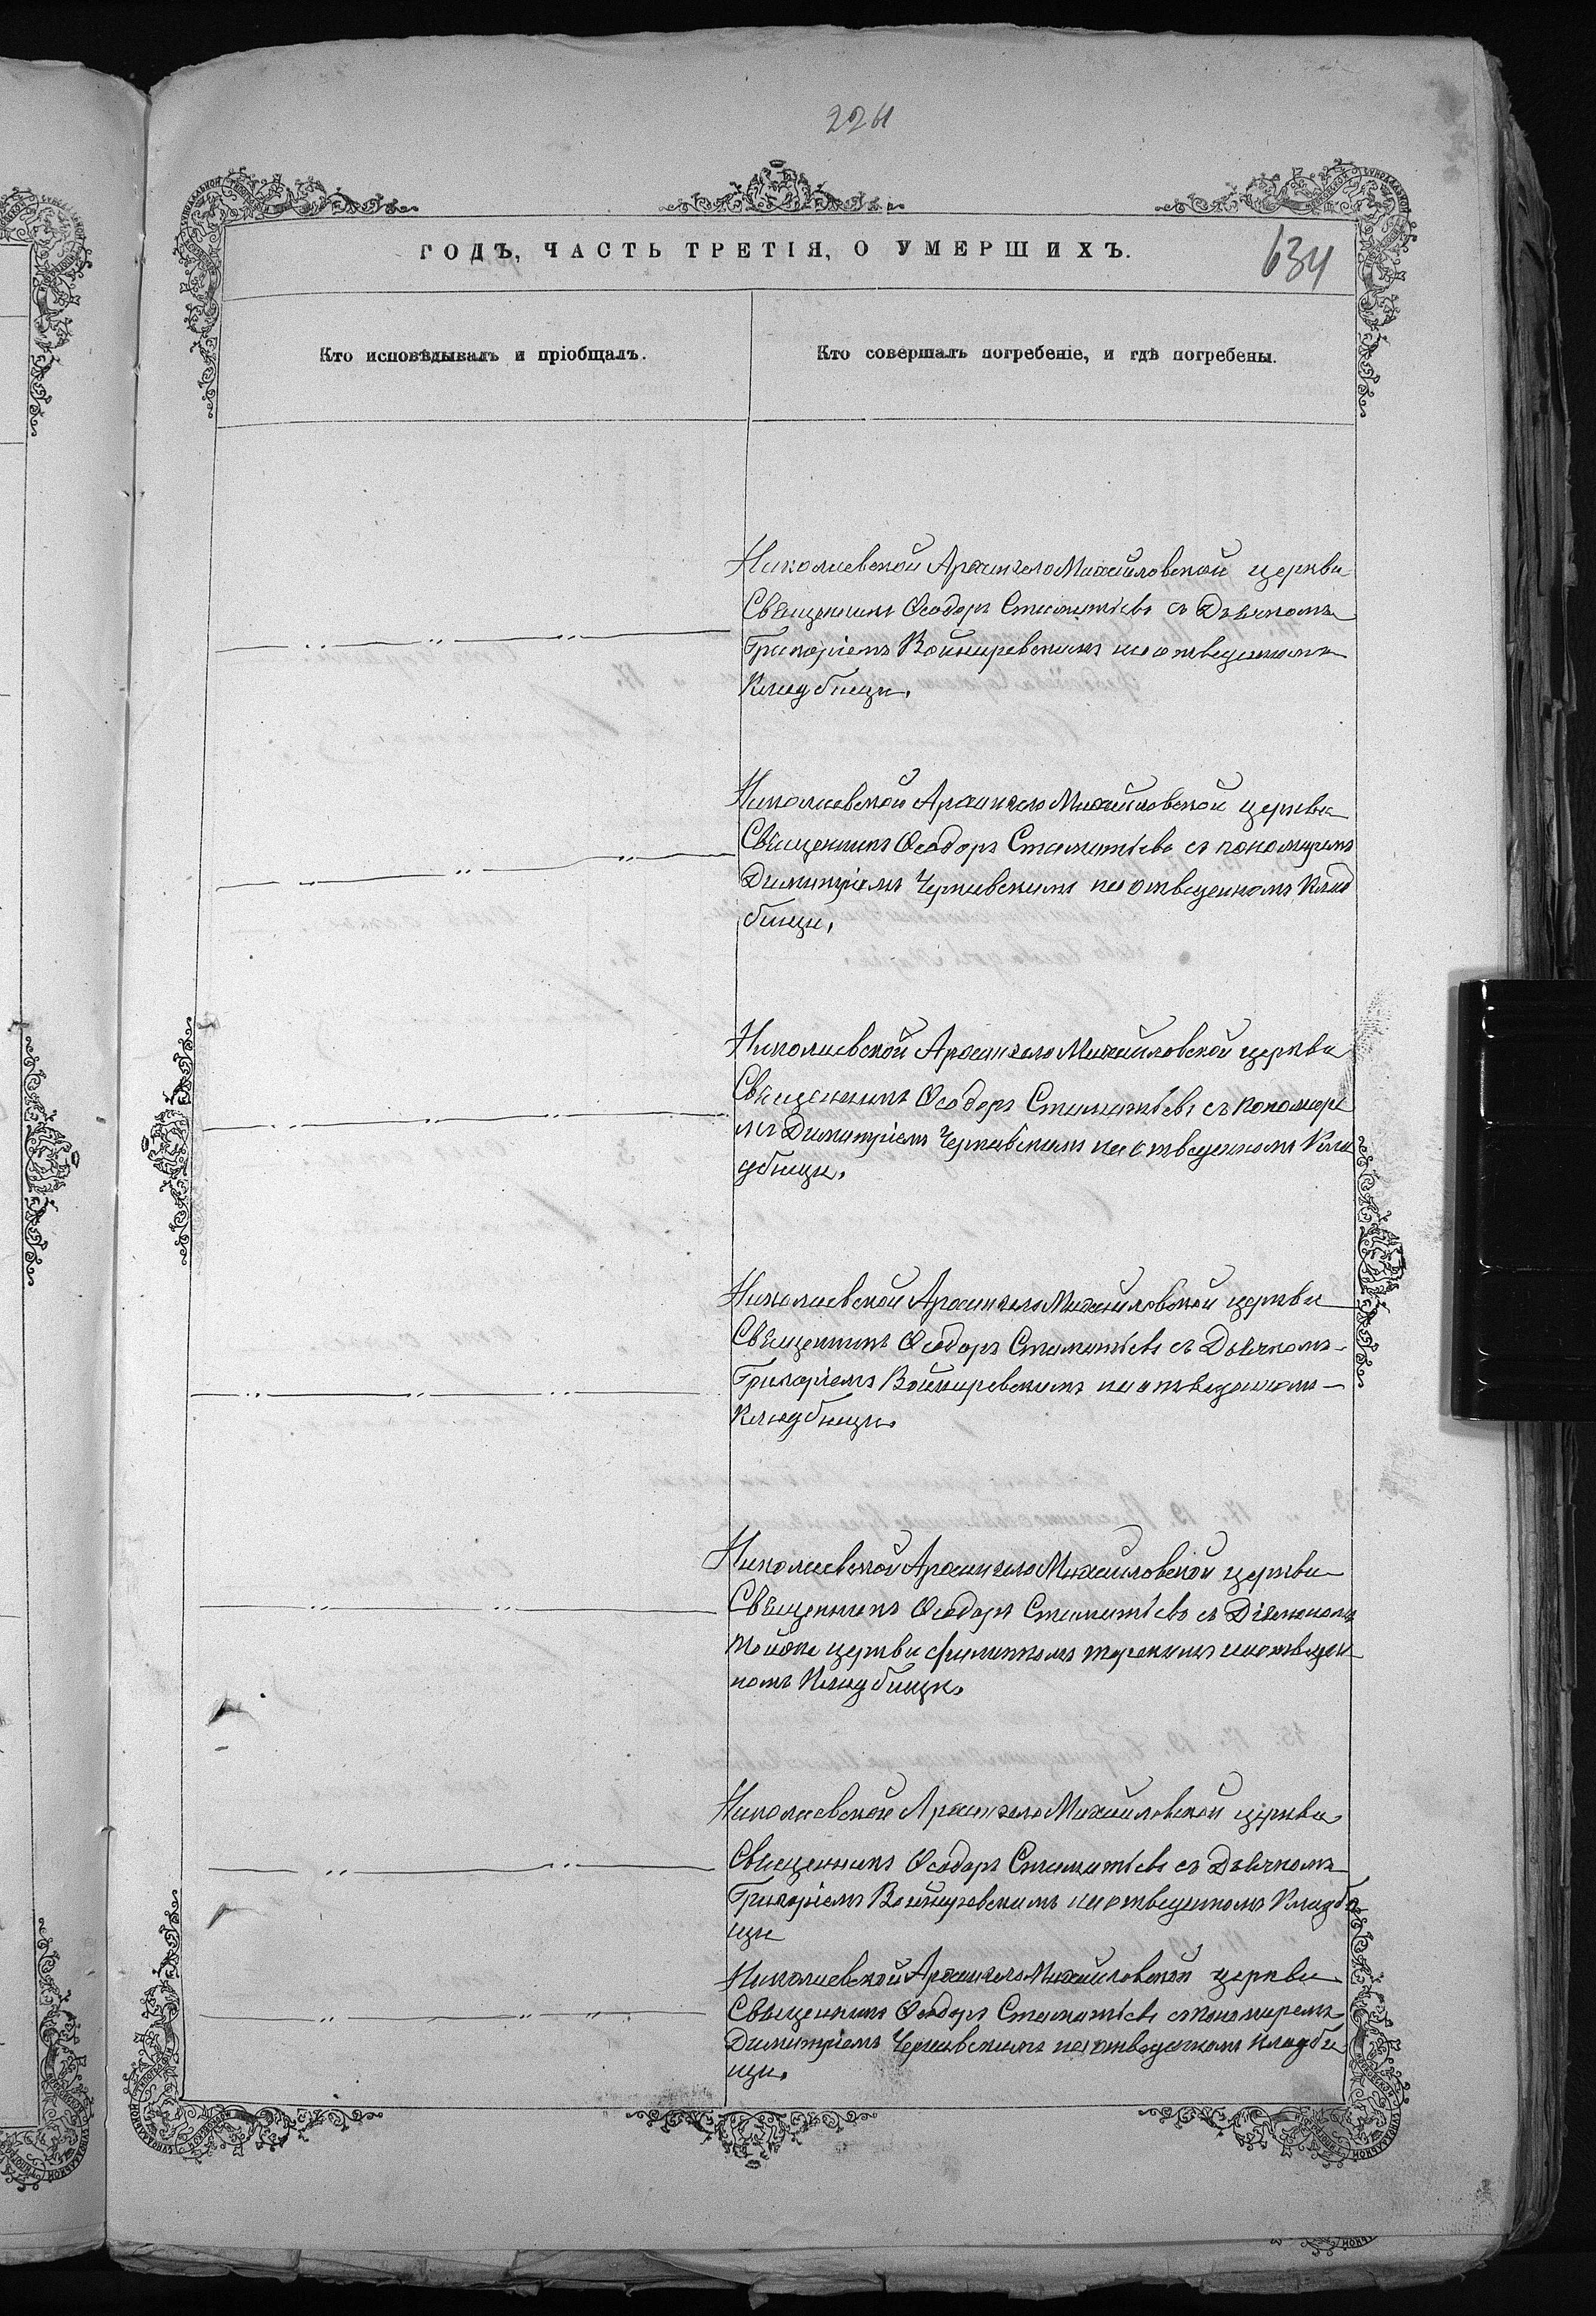 224
ГОДЪ, ЧАСТЬ ТРЕТІЯ, О УМЕРШИХЪ.
634
Кто исповѣдывалъ и пріобщалъ.
Кто совершалъ погребеніе, и гдѣ погребены.
Николаевской Архангело Михайловской церкви
Священникъ Ѳеодоръ Стаматіевъ съ Дьячкомъ
Григоріемъ Войнаревскимъ на отведенномъ
Кладбищи.
Николаевской Архангело Михайловской церкви
Священникъ Ѳеодоръ Стаматіевъ съ пономаремъ
Димитріемъ Чернявскимъ на отведенномъ Клад
бищи.
Николаевской Архангело Михайловской церкви
Священникъ Ѳеодоръ Стаматіевъ съ пономаре
мъ Димитріемъ Чернявскимъ на отведенномъ Кла
дбищи.
Николаевской Архангело Михайловской церкви
Священникъ Ѳеодоръ Стаматіевъ съ Дьячкомъ
Григоріемъ Войнаревскимъ на отведенномъ
Кладбищи.
Николаевской Архангело Михайловской церкви
Священникъ Ѳеодоръ Стаматіевъ съ Діакономъ
той же церкви на отведен
номъ Кладбищи.
Николаевской Архангело Михайловской церкви
Священникъ Ѳеодоръ Стаматіевъ съ Дьячкомъ
Григоріемъ Войнаревскимъ на отведенномъ Кладби
щи
Николаевской Архангело Михайловской церкви
Священникъ Ѳеодоръ Стаматіевъ съ пономаремъ
Димитріемъ Чернявскимъ на отведенномъ кладби
щи.